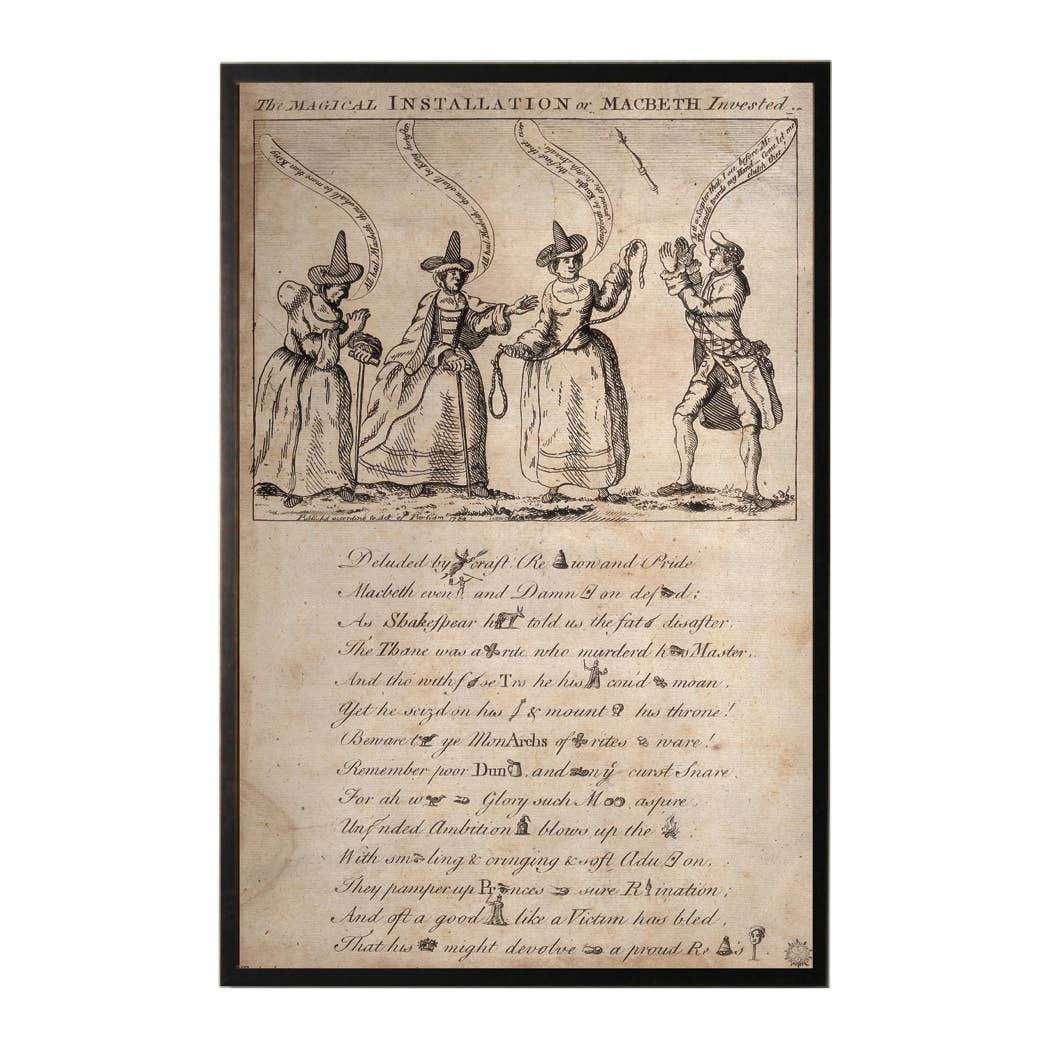 The MAGICAL INSTALLATION or MACBETH Invested
All hail Macbeth thou shalt be more than King
All hail Macbeth thou shalt be King
the first that
Is it a Scepter that I see before Me
The handle towards my Hand Come let me
clutch thee!
Publish'd according to Act of Parliam.
Deluded by craft Re wn and Pride
Macbeth even and Damn on def d;
As Shakespear h told us the fat disaster,
The Thane was a rite who murderd h Master,
And tho with f se Trs he his cou'd moan,
Yet he seiz'd on his & mount his throne!
Beware t ye MonArchs of rites ware!
Remember poor Dun and ny curst Snare.
For ah w Glory such M aspire
Un nded Ambition blows up the
With sm ling & cringing & soft Adu on,
They pamper up Pr nces sure R ination;
And oft a good like a Victim has bled,
That his might devolve a proud Re 's